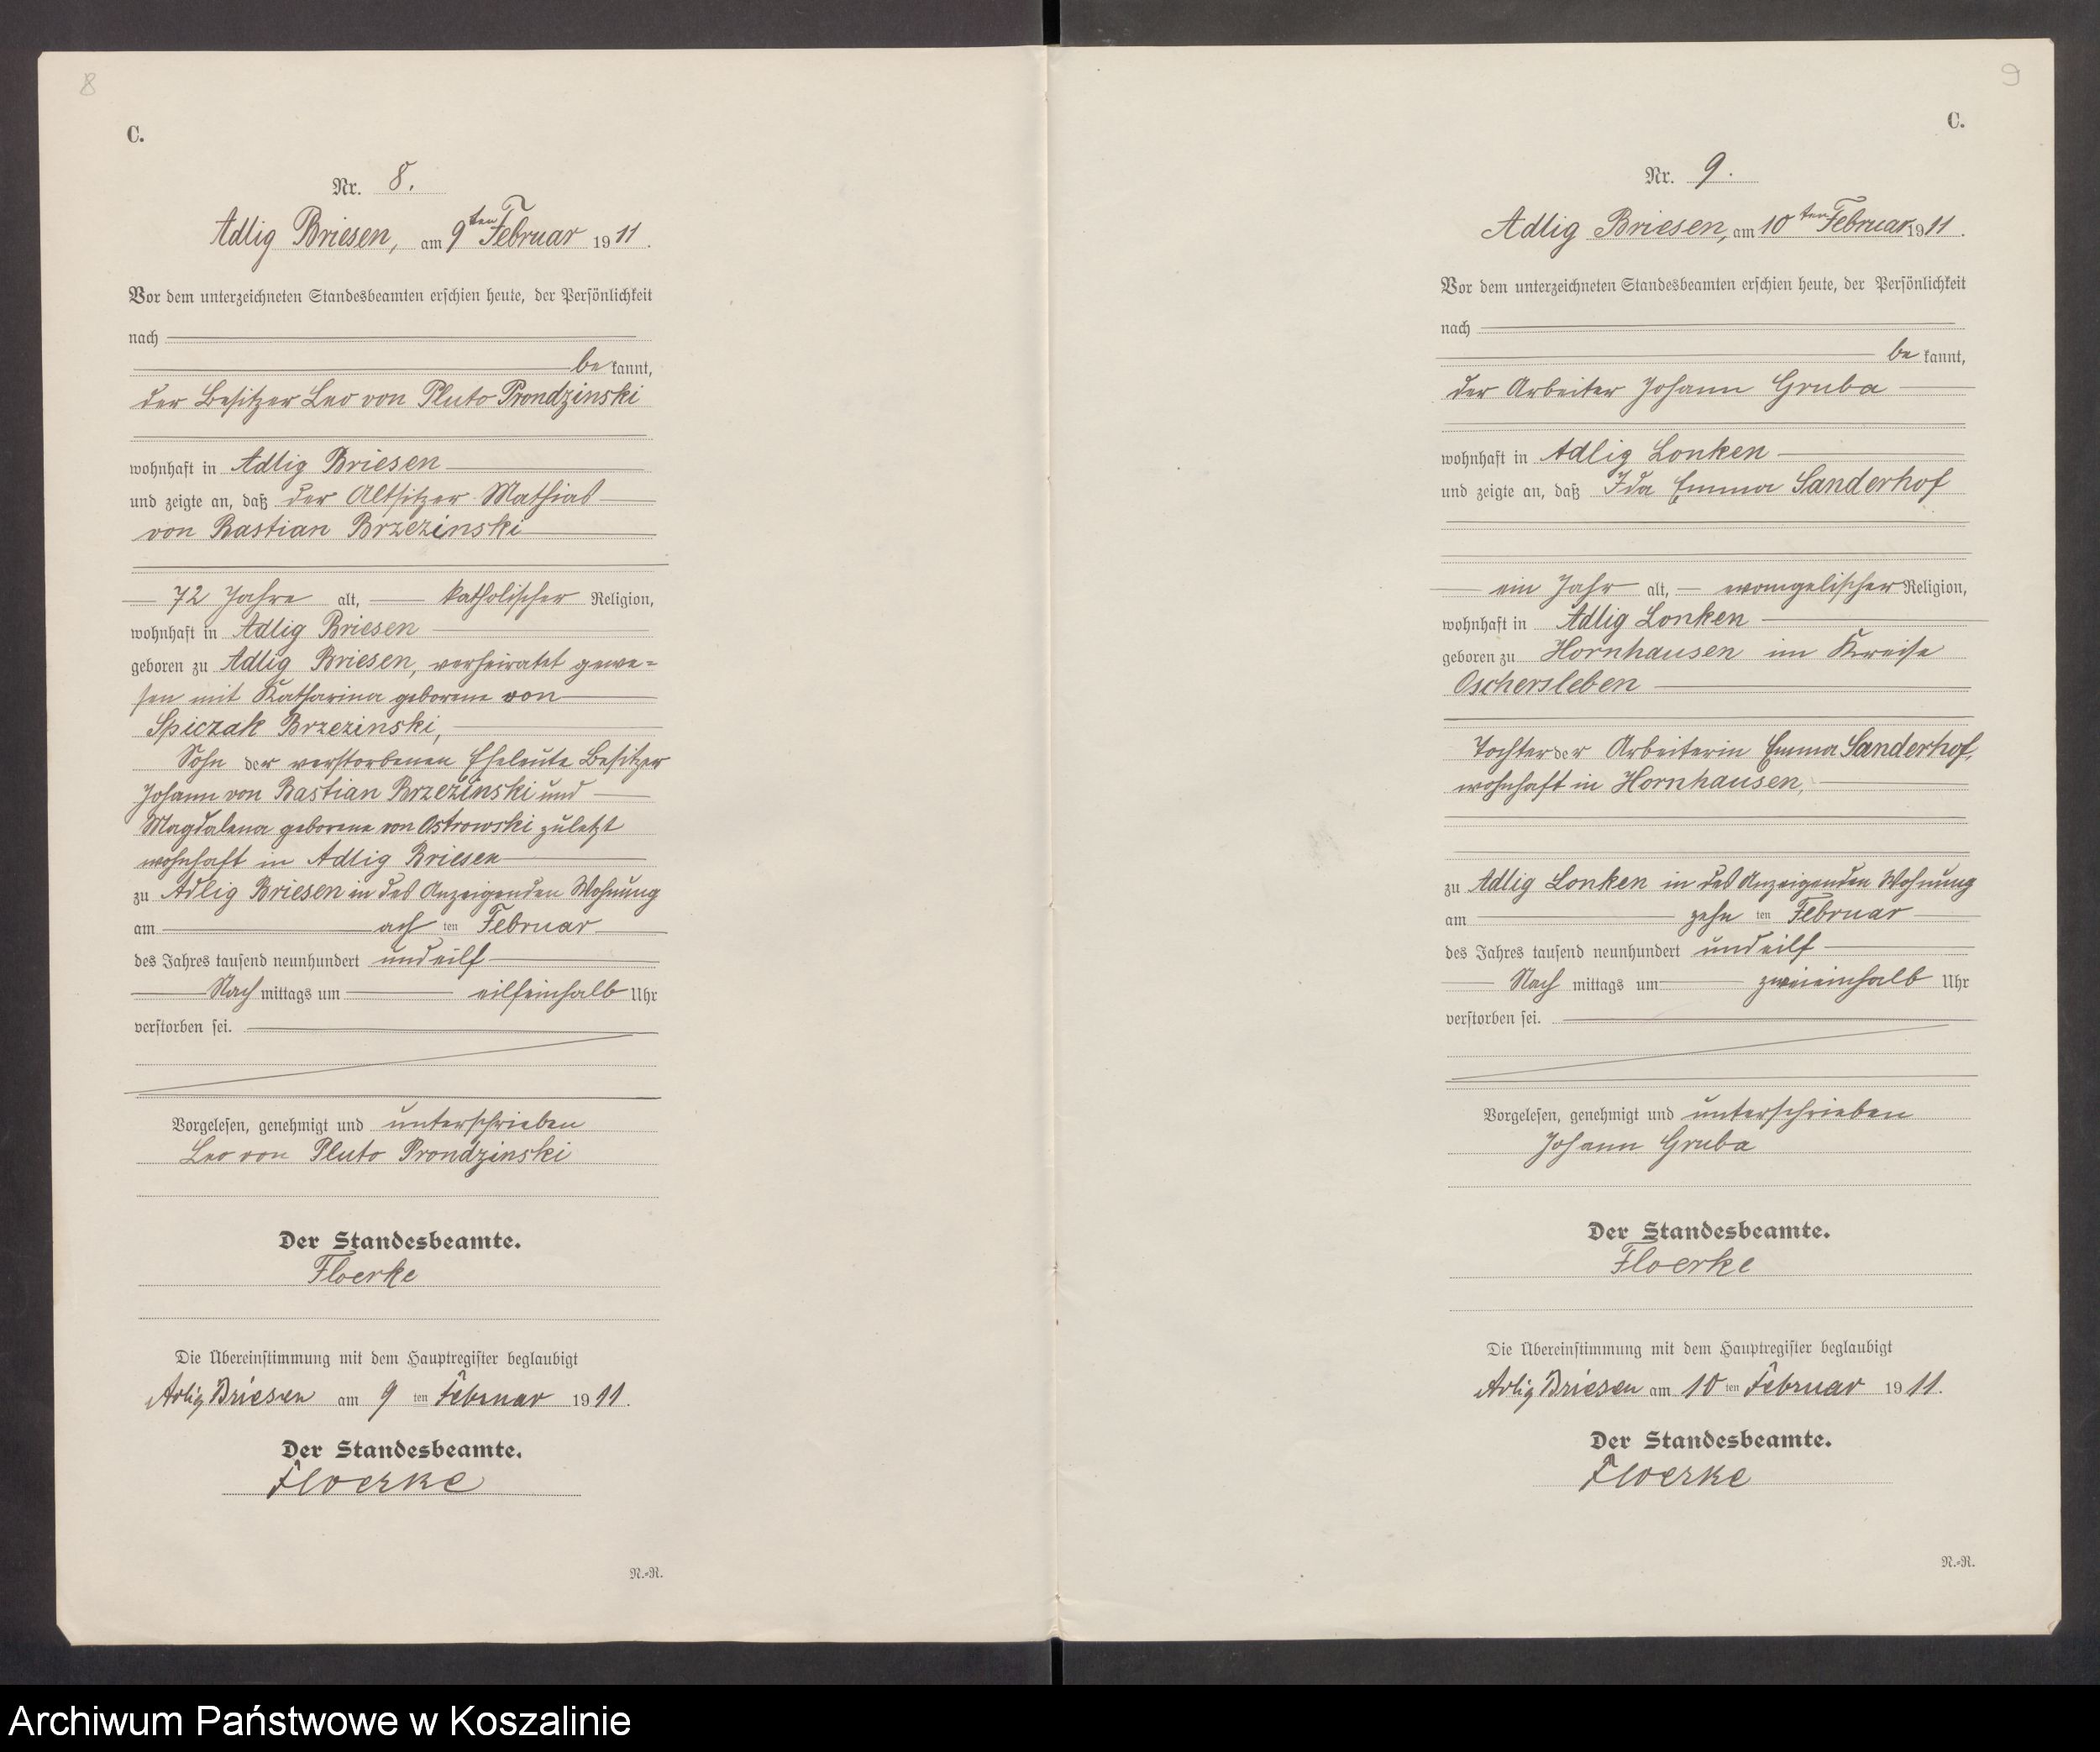 8
C.
Nr. 8.
Adlig Briesen, am 9ten Februar 1911.
Vor dem unterzeichneten Standesbeamten erschien heute, der Persönlichkeit
nach
be kannt,
der Besitzer Leo von Pluto Prondzinski
wohnhaft in Adlig Briesen
und zeigte an, daß der Altsitzer Mathias
von Bastian Brzezinski
72 Jahre alt, katholischer Religion,
wohnhaft in Adlig Briesen
geboren zu Adlig Briesen, verheiratet gewe=
sen mit Katharina geborene von
Spiczak Brzezinski,
Sohn der verstorbenen Eheleute Besitzer
Johann von Bastian Brzezinski und
Magdalena geborene von Ostrowski zuletzt
wohnhaft in Adlig Briesen
zu Adlig Briesen in des Anzeigenden Wohnung
am ach ten Februar
des Jahres tausend neunhundert undeilf
Nach mittags um eilfeinhalb Uhr
verstorben sei.
Vorgelesen, genehmigt und unterschrieben
Leo von Pluto Prondzinski
Der Standesbeamte.
Floerke
Die Übereinstimmung mit dem Hauptregister beglaubigt
Adlig Briesen am 9 ten Februar 1911.
Der Standesbeamte.
Floerke
N.=R.
9
C.
Nr. 9.
Adlig Briesen, am 10ten Februar 1911.
Vor dem unterzeichneten Standesbeamten erschien heute, der Persönlichkeit
nach
be kannt,
der Arbeiter Johann Gruba
wohnhaft in Adlig Lonken
und zeigte an, daß Ida Emma Sanderhof
ein Jahr alt, evangelischer Religion,
wohnhaft in Adlig Lonken
geboren zu Hornhausen im Kreise
Oschersleben
Tochter der Arbeiterin Emma Sanderhof,
wohnhaft in Hornhausen,
zu Adlig Lonken in des Anzeigenden Wohnung
am zehn ten Februar
des Jahres tausend neunhundert undeilf
Nach mittags um zweieinhalb Uhr
verstorben sei.
Vorgelesen, genehmigt und unterschrieben
Johann Gruba
Der Standesbeamte.
Floerke
Die Übereinstimmung mit dem Hauptregister beglaubigt
Adlig Briesen am 10 ten Februar 1911.
Der Standesbeamte.
Floerke
N.=R.
Archiwum Państwowe w Koszalinie